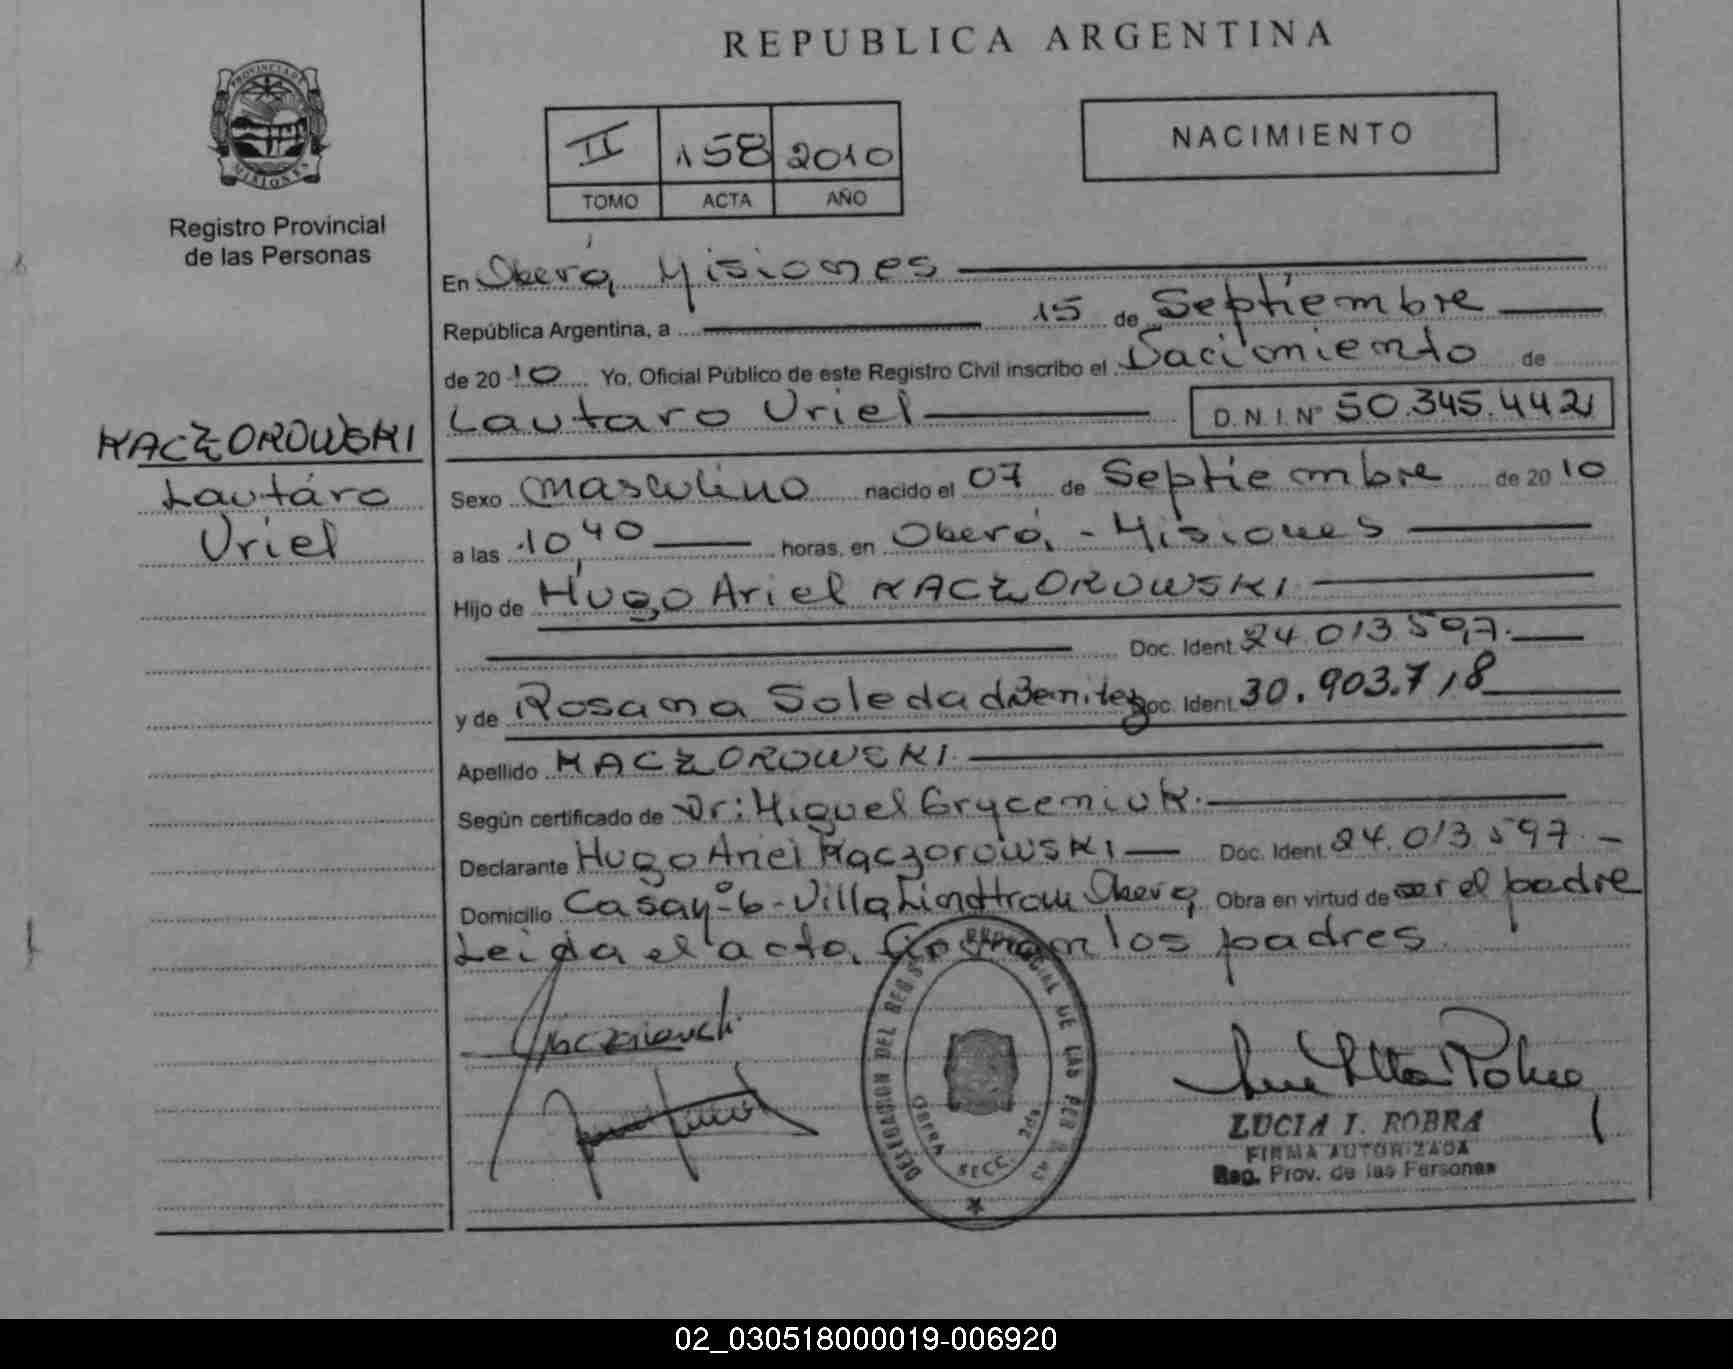 REPUBLICA ARGENTINA
PROVINCIA DE
MISIONES
Registro Provincial
de las Personas
II 158 2010
TOMO ACTA AÑO
NACIMIENTO
En Oberá, Misiones
República Argentina, a 15 de Septiembre
de 2010 Yo, Oficial Público de este Registro Civil inscribo el Nacimiento de
Lautaro Uriel D.N.I. Nº 50.345.442
KACZOROWSKI
Lautaro
Uriel
Sexo masculino nacido el 07 de Septiembre de 2010
a las 10,40 horas, en Oberá, - Misiones
Hijo de Hugo Ariel KACZOROWSKI
Doc. Ident. 24.013.597.
y de Rosana Soledad Benitez Doc. Ident. 30.903.718
Apellido KACZOROWSKI.
Según certificado de Dr: Miguel Gryceniuk.
Declarante Hugo Ariel Kaczorowski Doc. Ident. 24.013.597.
Domicilio Casa nº 6 - Villa Lindtrom Oberá Obra en virtud de ser el padre
Leida el acta, firman los padres.
DELEGACION DEL REGISTRO PROVINCIAL DE LAS PERSONAS
OBERA SECC. 2da
LUCIA I. ROBRA
FIRMA AUTORIZADA
Reg. Prov. de las Personas
02_030518000019-006920